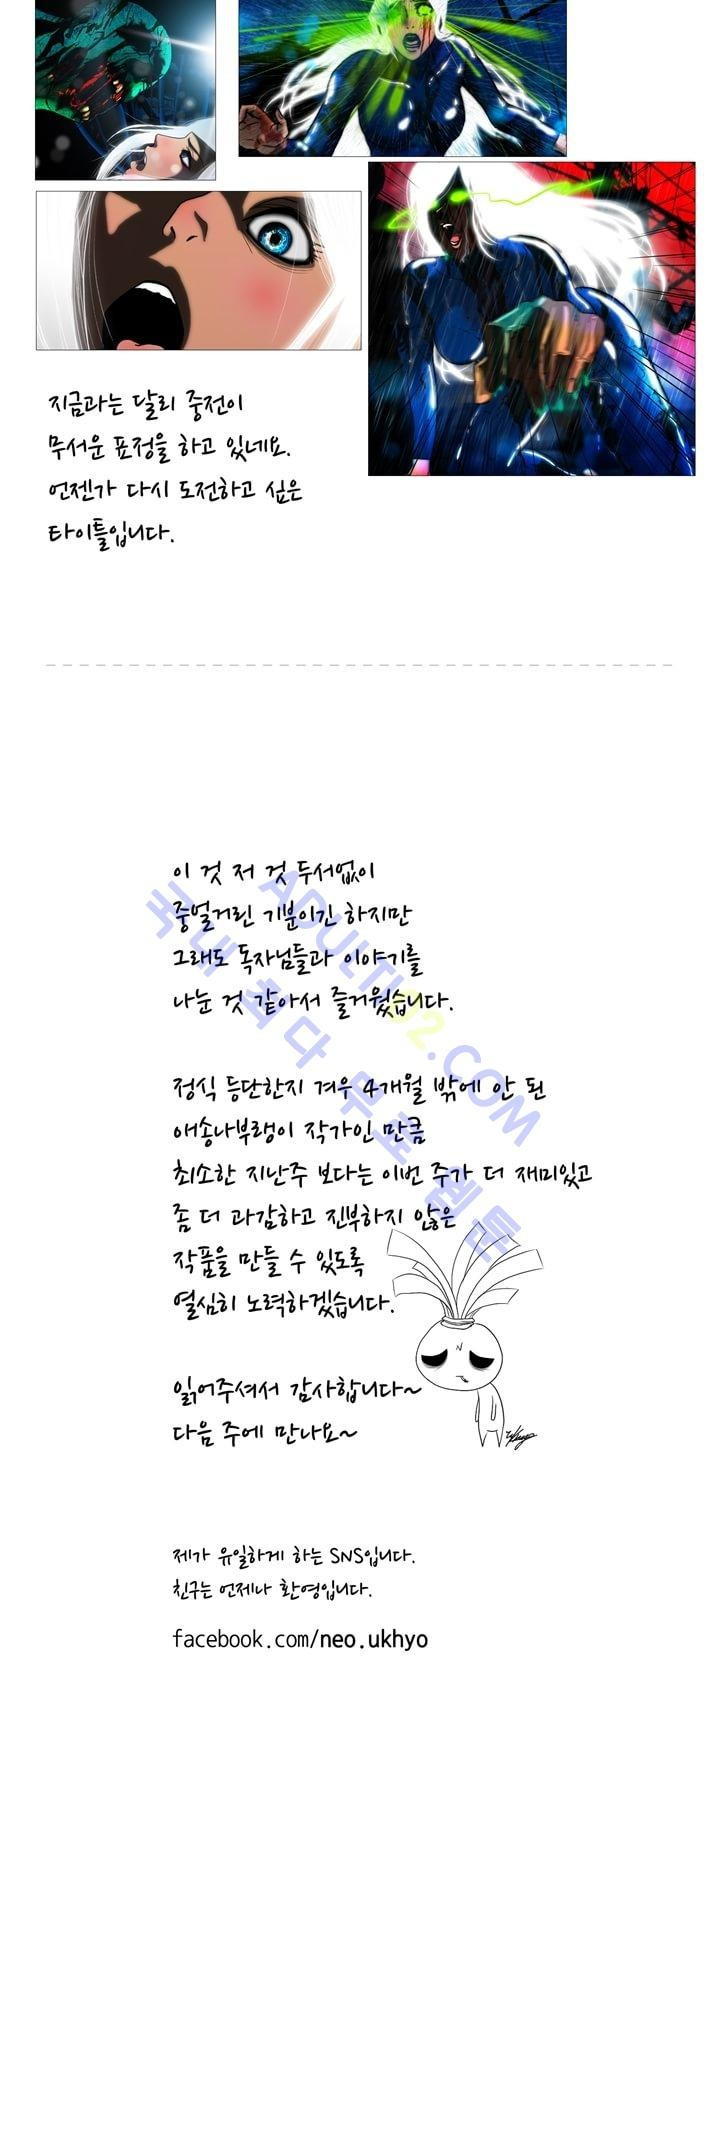 지금과는 달리 중전이
무서운 표정을 하고 있네요.
언젠가 다시 도전하고 싶은
타이틀입니다.
이 것 저 것 두서없이
중얼거린 기분이긴 하지만
그래도 독자님들과 이야기를
나눈 것 같아서 즐거웠습니다.
정식 등단한지 겨우 4개월 밖에 안 된
애송나부랭이 작가인 만큼
최소한 지난주 보다는 이번 주가 더 재미있고
좀 더 과감하고 진부하지 않은
작품을 만들 수 있도록
열심히 노력하겠습니다.
읽어주셔서 감사합니다~
다음 주에 만나요~
제가 유일하게 하는 SNS입니다.
친구는 언제나 환영입니다.
facebook.com/neo.ukhyo
국내 최다 무료 웹툰